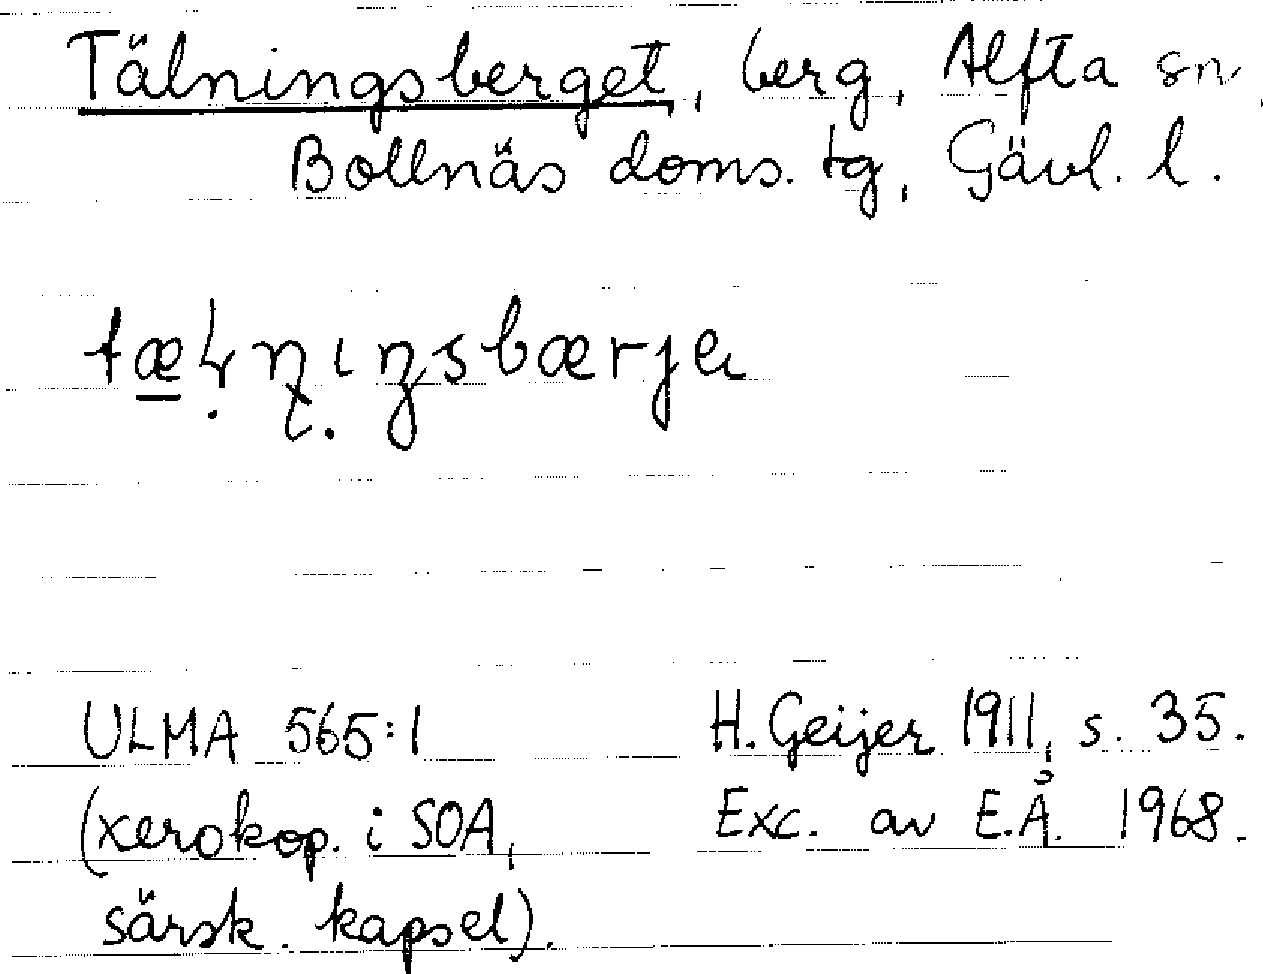 Tälningsberget, berg, Alfta sn,
Bollnäs doms. tg, Gävl. l.
ULMA 565:1
(xerokop. i SOA,
särsk. kapsel).
H. Geijer 1911, s. 35.
Exc. av E.Å. 1968.